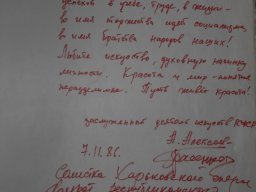 успехов в учёбе, труде, в жизни –
во имя торжества идей социализма,
во имя братства народов наших!
Любите искусство, духовную
личности. Красота и мир – понятия
нераздельные. Пусть живёт красота!
заслуженный деятель искусств
7.11.86.
Солистка Харьковской оперы